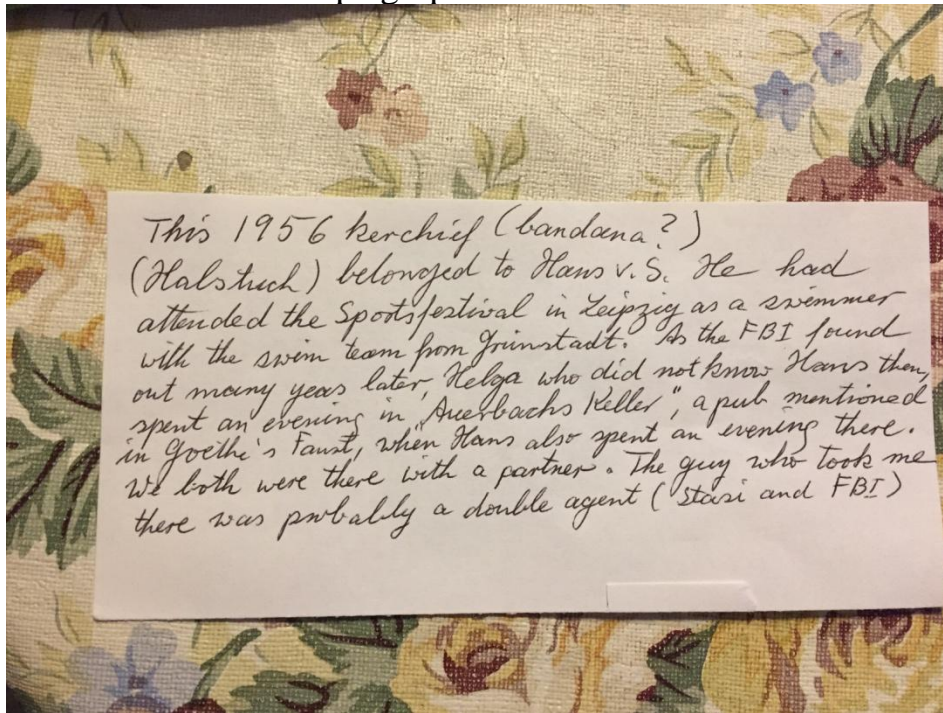 This 1956 kerchief (bandana?)
(Halstuch) belonged to Hans v. S. He had
attended the Sportsfestival in Leipzig as a swimmer
with the swim team from Grünstadt. As the FBI found
out many years later, Helga who did not know Hans then,
spent an evening in "Auerbachs Keller", a pub mentioned
in Goethe's Faust, when Hans also spent an evening there.
We both were there with a partner. The guy who took me
there was probably a double agent (Stasi and FBI)